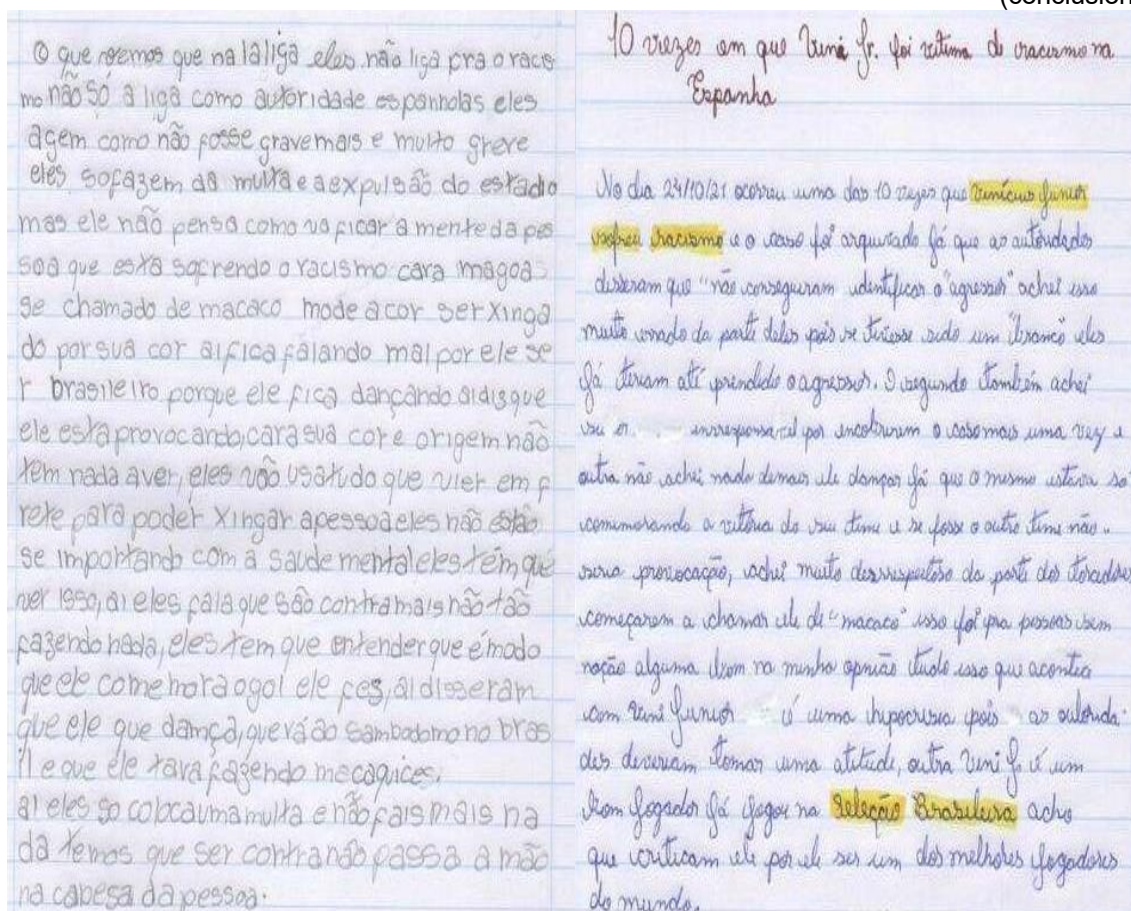 (conclusion
O que vemos que na laliga eles não liga pra o racis
mo não só a liga como autoridade espanholas eles
agem como não fosse gravemais e muito greve
eles sofazem da multa e a expulsão do estadio
mas ele não pensa como va ficar a mente da pes
soa que está sofrendo o racismo cara magoa
se chamado de macaco mode a cor ser xinga
do por sua cor ai fica falando mal por ele se
r brasileiro porque ele fica dançando aidisque
ele está provocando, cara sua cor e origem não
tem nada aver, eles vão usatudo que vier em f
rete para poder xingar apessoa eles não estão
se importando com a saude mental eles têm que
ver isso, ai eles fala que são contra mais não tão
fazendo nada, eles tem que entender que é modo
que ele comemora o gol ele fes, ai disseram
que ele que damça, que vá ao sambodomo no bras
il e que ele tava fazendo macaquices.
ai eles so coloca uma multa e não fais mais na
da temos que ser contra não passa a mão
na cabesa da pessoa.
10 vezes em que Vini Jr. foi vitima de racismo na
Espanha
No dia 24/10/21 ocorreu uma das 10 vezes que Vinícius Junior
sofreu racismo e o caso foi arquivado já que as autoridades
disseram que "não conseguiram identificar o "agressor" achei isso
muito errado da parte deles pois se tivesse sido um "branco" eles
já teriam até prendido o agressor. O segundo também achei
irresponsavel por encobrirem o caso mais uma vez e
outra não achei nada demais ele dançar já que o mesmo estava so
comemorando a vitória do seu time e se fosse o outro time não
seria provocação, achei muito desrrespeitoso da parte dos torcedores
começarem a chamar ele de "macaco" isso foi pra pessoas sem
noção alguma bom na minha opinião tudo isso que acontece
com Vini Junior é uma hipocrisia pois as autorida-
des deveriam tomar uma atitude, outra Vini Jr é um
bom jogador já jogou na Seleção Brasileira acho
que criticam ele por ele ser um dos melhores jogadores
do mundo.